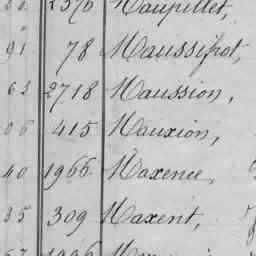 2376 Maupillet,
91 78 Maussifrot,
62 2718 Maussion,
06 415 Mauxion,
40 1966 Maxence,
35 309 Maxent,